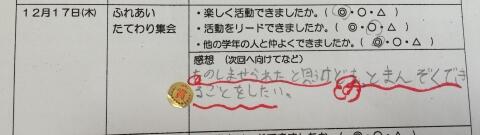 12月17日(木)
ふれあい
たてわり集会
・楽しく活動できましたか。(◎・○・△)
・活動をリードできましたか。(◎・○・△)
・他の学年の人と仲よくできましたか。(◎・○・△)
感想 (次回へ向けてなど)
たのしませられたと思うけどもっとまんぞくでき
ることをしたい。